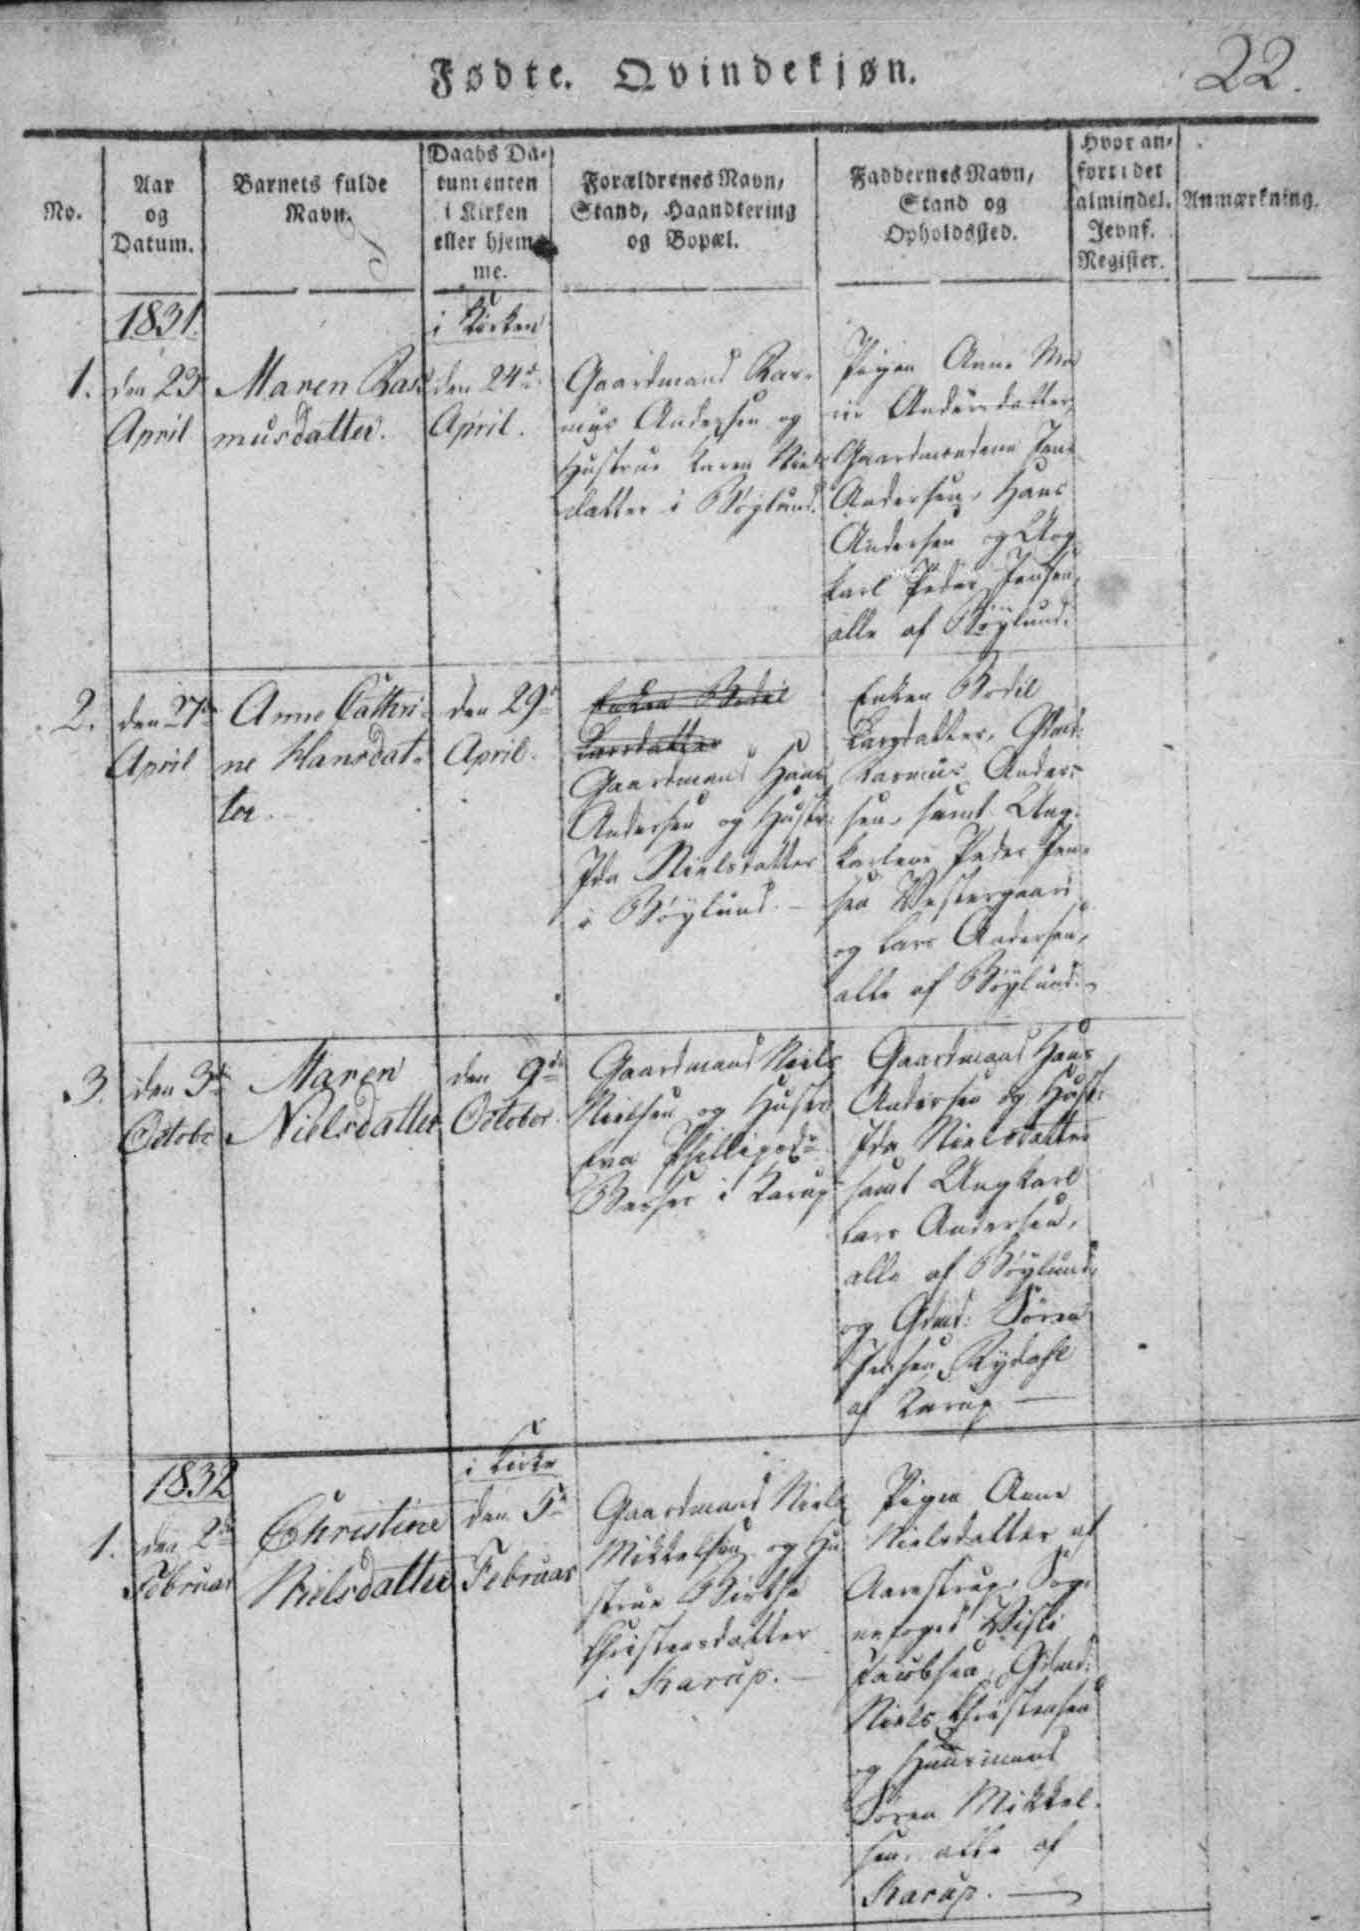 Fødte. Qvindekjøn.
22.
No.
Aar
og
Datum.
Barnets fulde
Navn.
Daabs Da-
tum enten
i Kirken
eller hjem-
me.
Forældrenes Navn,
Stand, Haandtering
og Bopæl.
Faddernes Navn,
Stand og
Opholdssted.
Hvor an-
ført i det
almindel.
Jevnf.
Register.
Anmærkning.
1831.
i Kirken
1.
den 23
April
Maren Ras-
musdatter.
den 24de
April.
Gaardmand Ras-
mus Andersen og
Hustrue Karen Niels
datter i Bøylund.
Pigen Anne Ma
rie Andersdatter,
Gaardmændene Jens
Andersen, Hans
Andersen og Ung
karl Peder Jensen,
alle af Bøylund.
2.
den 27de
April
Anne Cathri-
ne Hansdat-
ter.
den 29de
April.
Enken Bodil
Larsdatter
Gaardmand Hans
Andersen og Hustr:
Ida Nielsdatter
i Bøylund. —
Enken Bodil
Larsdatter, Gmd:
Rasmus Ander-
sen, samt Ung-
karlene Peder Jen-
sen Vestergaard
og Lars Andersen,
alle af Bøylund.
3.
den 3de
Octobr
Maren
Nielsdatter
den 9de
October.
Gaardmand Niels
Nielsen og Hustr
Eva Phillipsdr
i Karup
Gaardmand Hans
Andersen og Hust:
Ida Nielsdatter
samt Ungkarl
Lars Andersen,
alle af Bøylund,
og Gdmd: Søren
Jensen Rydahl
af Karup —
1832
i Kirke
1.
den 2de
Februar
Christine
Nielsdatter
den 5te
Februar
Gaardmand Niels
Mikkelsen og Hu
strue Birthe
Christensdatter
i Karup. —
Pigen Anne
Nielsdatter af
Aarestrup, Sog-
nefoged
Jacobsen, Gdmd:
Niels Christensen
og Huusmand
Søren Mikkel-
sen, alle af
Karup. —